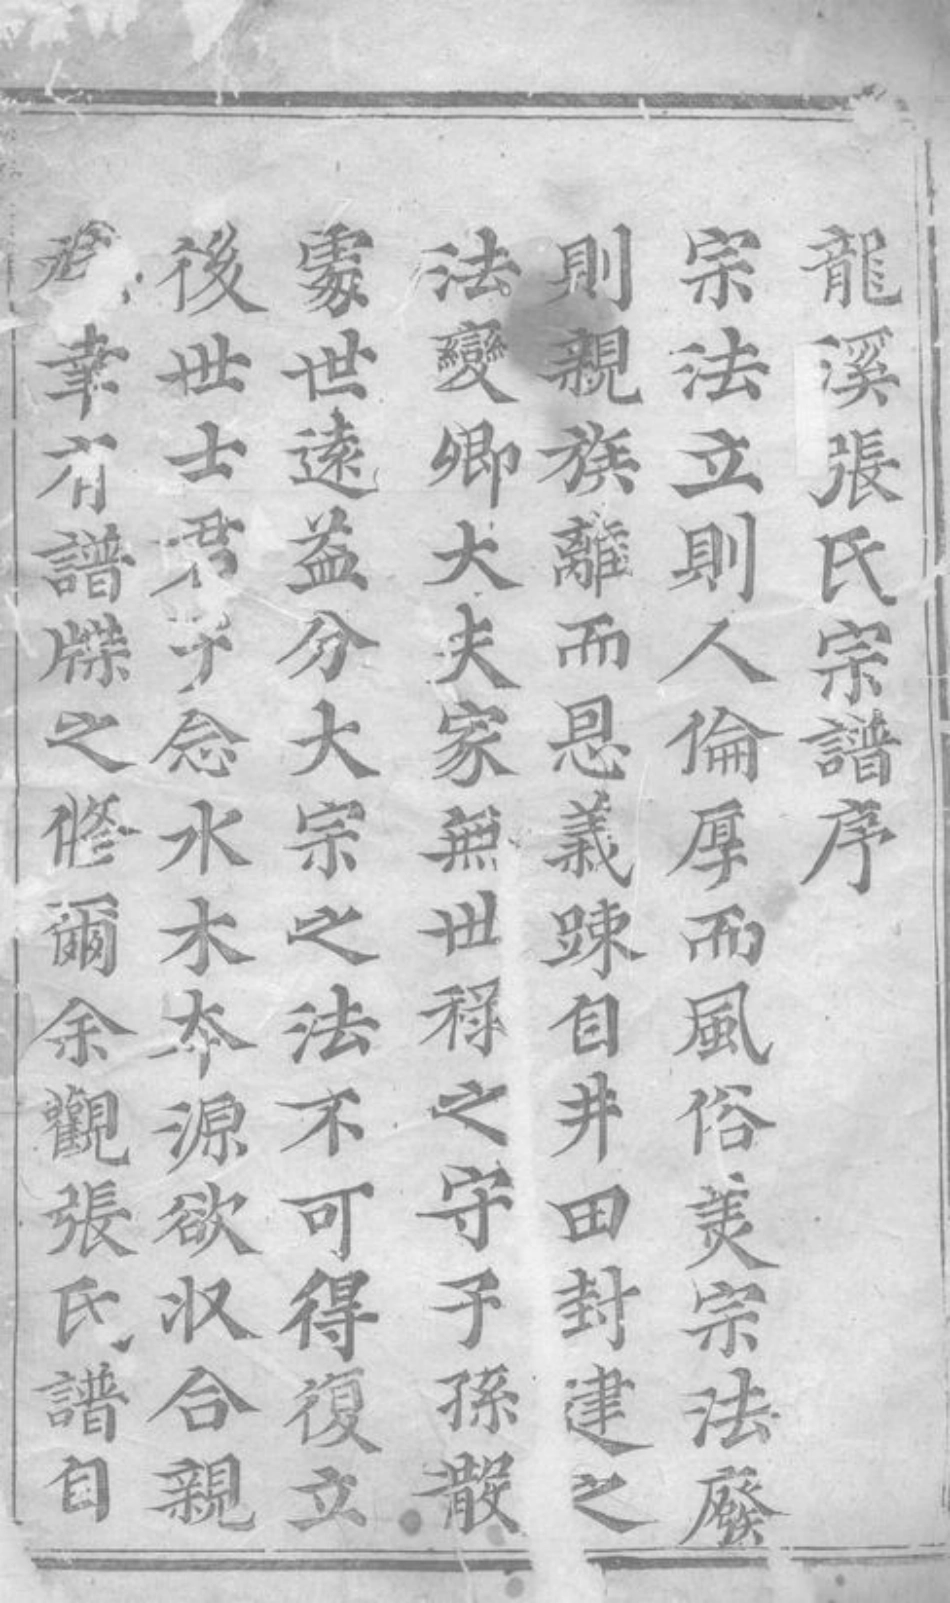 龍溪張氏宗譜序
宗法立則人倫厚而風俗美宗法廢
則親族離而恩義踈自井田封建之
法變卿大夫家無世禄之守子孫散
處世遠益分大宗之法不可得復立
後世士君子念水木本源欲収合親
幸有譜牒之修爾余觀張氏譜自